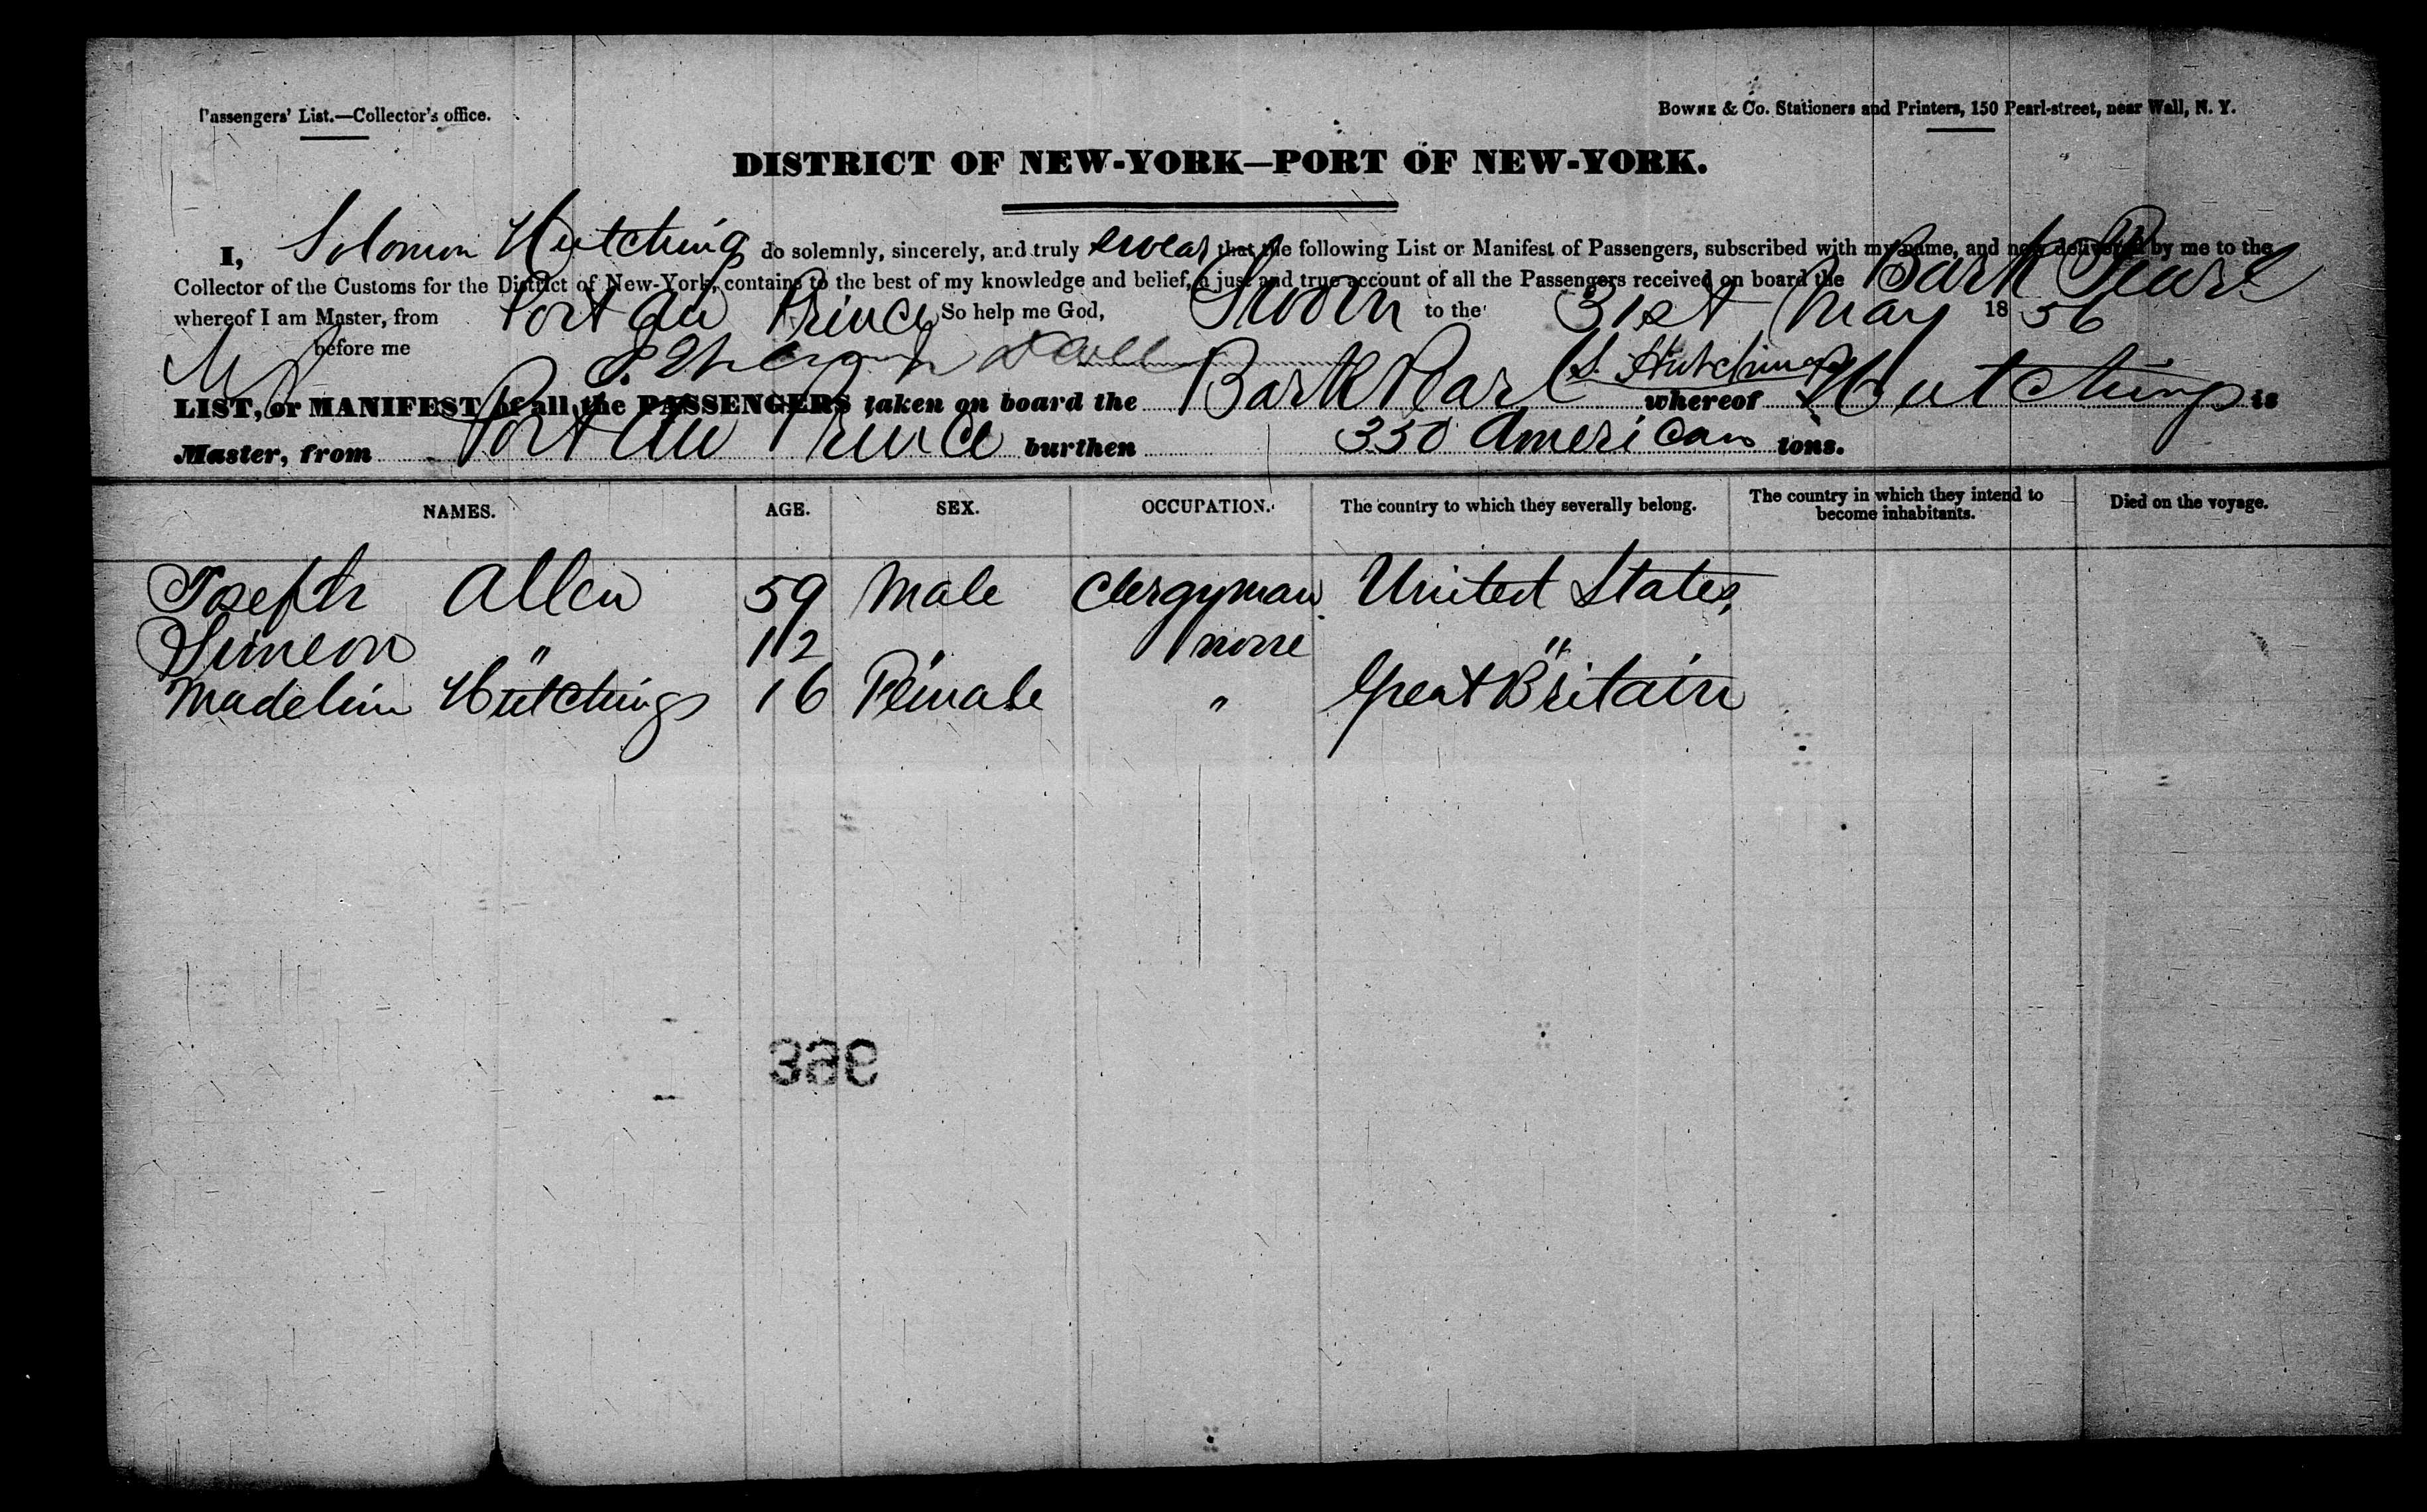 Passengers' List.—Collector's office.
Bowne & Co. Stationers and Printers, 150 Pearl-street, near Wall, N. Y.
DISTRICT OF NEW-YORK—PORT OF NEW-YORK.
I, Solomon Hutchings do solemnly, sincerely, and truly swear that the following List or Manifest of Passengers, subscribed with my name, and now delivered by me to the
Collector of the Customs for the District of New-York, contains to the best of my knowledge and belief, a just and true account of all the Passengers received on board the Bark Pearl
whereof I am Master, from Port au Prince So help me God, Sworn to the 31st May 1856
before me S. Hutchings
LIST, or MANIFEST of all the PASSENGERS taken on board the Bark Pearl whereof Hutchings is
Master, from Port au Prince burthen 350 American tons.
NAMES. AGE. SEX. OCCUPATION. The country to which they severally belong. The country in which they intend to become inhabitants. Died on the voyage.
Joseph Allen 59 Male Clergyman United States,
Simeon " 12 " none "
Madelin Hutchings 16 Female " Great Britain
396